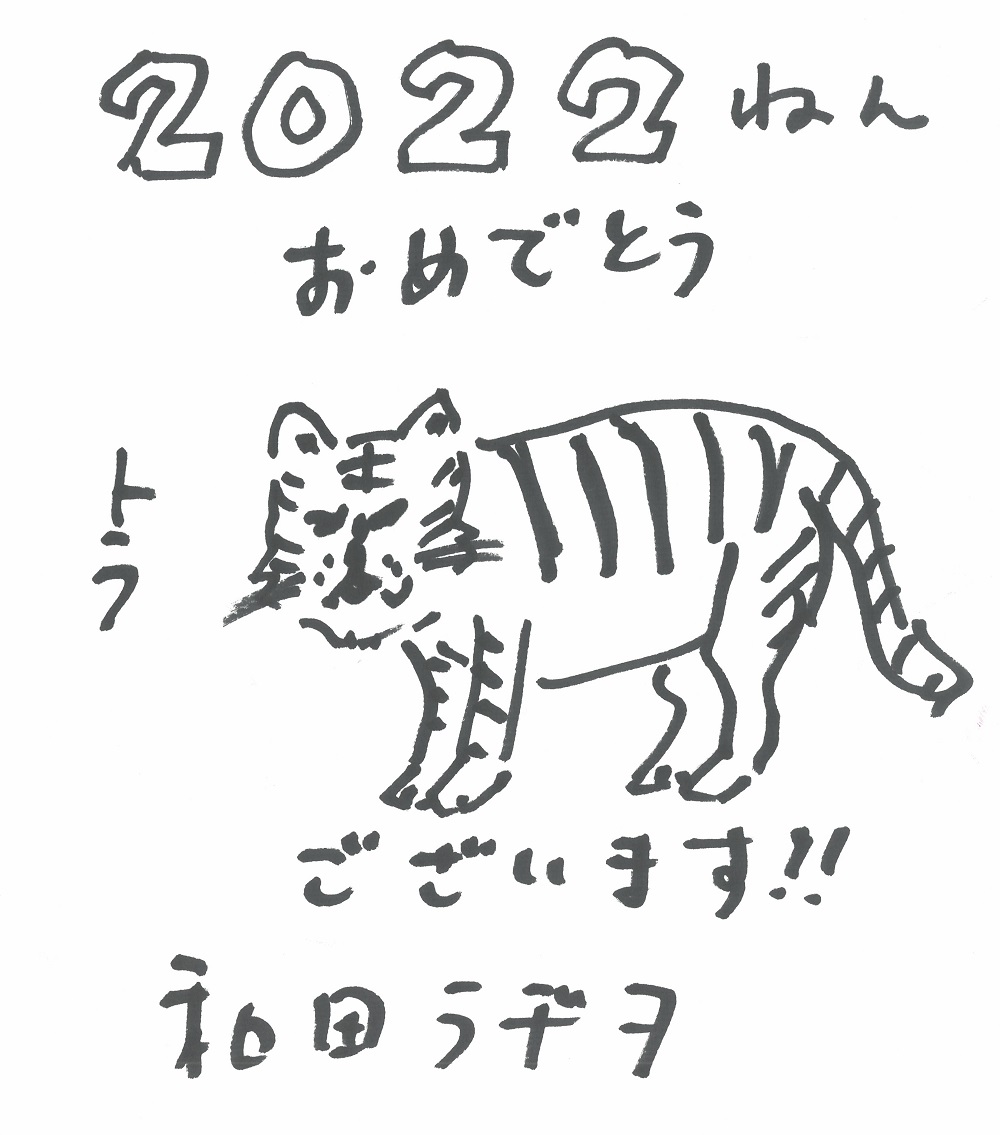 2022ねん
おめでとう
トラ
ございます!!
和田ラヂヲ